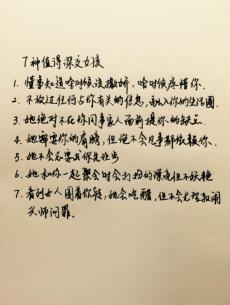 7种值得深交女孩
1. 懂事知道啥时候该撒娇,啥时候应懂你.
2. 不放过任何与你有关的信息,融入你的生活圈.
3. 她绝对不在你同事家人面前提你的缺点.
4. 她需要你的肩膀,但绝不会凡事都依赖你.
5. 她不会总要求你先让步
6. 她和你一起聚会时会打扮的漂亮但不妖艳
7. 看别女人围着你转,她会吃醋,但不会
兴师问罪.